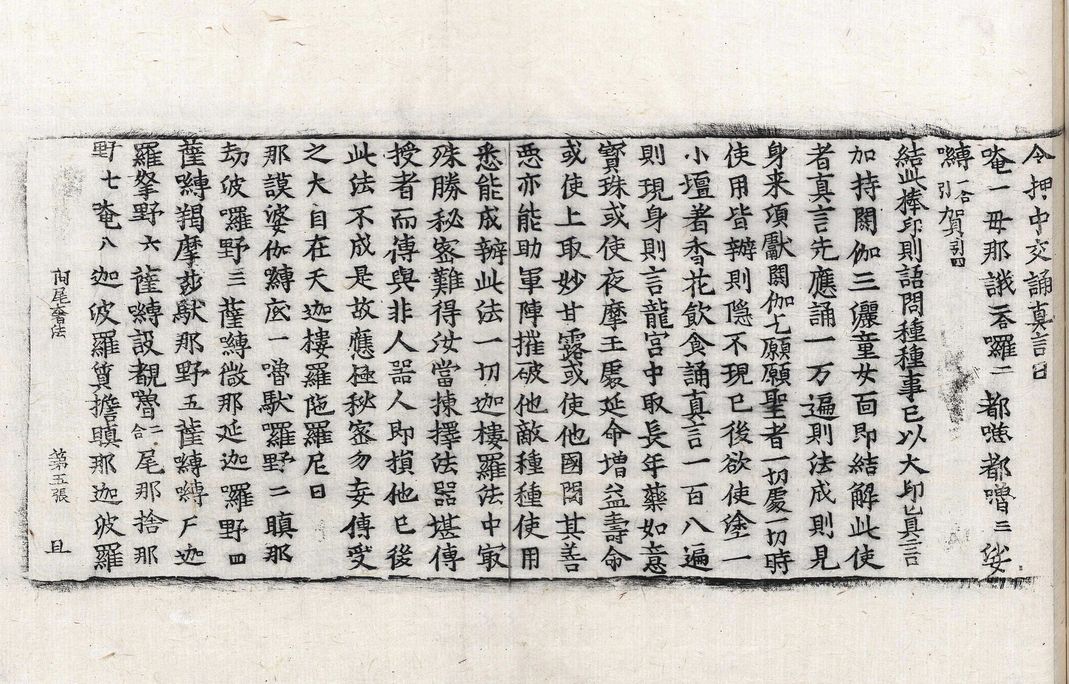 令押中交誦真言曰
唵一毋那誐二合囉二都嚩都嚕三娑
嚩二合引賀引四
結此捧印則語問種種事已以大印真言
加持閼伽三灑童女面即結解此使
者真言先應誦一万遍則法成則見
身来須獻閼伽乞願願聖者一切處一切時
使用皆辦則隱不現已後欲使塗一
小壇著香花飲食誦真言一百八遍
則現身則言龍宮中取長年藥如意
寶珠或使夜摩王處延命增益壽命
或使上取妙甘露或使他國聞其善
惡亦能助軍陣摧破他敵種種使用
悉能成辦此法一切迦樓羅法中㝡
殊勝秘密難得汝當揀擇法器堪傳
授者而傳與非人器人即損他已後
此法不成是故應極秘密勿妄傳受
之大自在天迦樓羅陁羅尼曰
那謨婆伽嚩底一嚕馱囉野二瞋那
劫彼囉野三薩嚩微那延迦囉野四
薩嚩羯摩莎馱那野五薩嚩嚩尸迦
羅拏野六薩嚩設覩嚕二合尾那捨那
野七唵八迦波羅質擔瞋那迦波羅
阿尾奢法 第五張 且